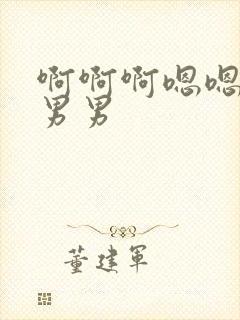 啊啊啊嗯嗯
男男
董建军